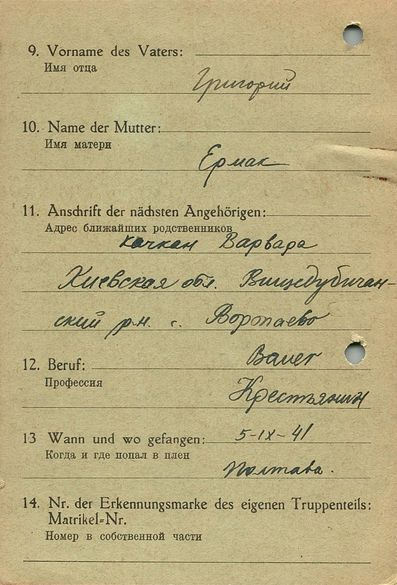 9. Vorname des Vaters:
Имя отца
Григорий
10. Name der Mutter:
Имя матери
Ермак
11. Anschrift der nächsten Angehörigen:
Адрес ближайших родственников
Качкан Варвара
Киевская обл.
ский р-н. с. Воропаево
12. Beruf:
Профессия
Крестьянин
13 Wann und wo gefangen: 5-IX-41
Когда и где попал в плен
Полтава.
14. Nr. der Erkennungsmarke des eigenen Truppenteils:
Matrikel-Nr.
Номер в собственной части